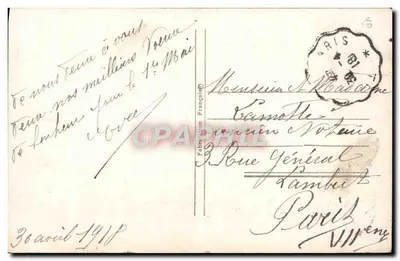 De nous deux à vous
deux nos meilleurs Voeux
de bonheur pour le 1er Mai
30 avril 1918
Fabrication Française
PARIS
Monsieur & Madame
Lamotte
Notaire
3 Rue Général
Lambert
Paris
VIIème
CPAPHIL